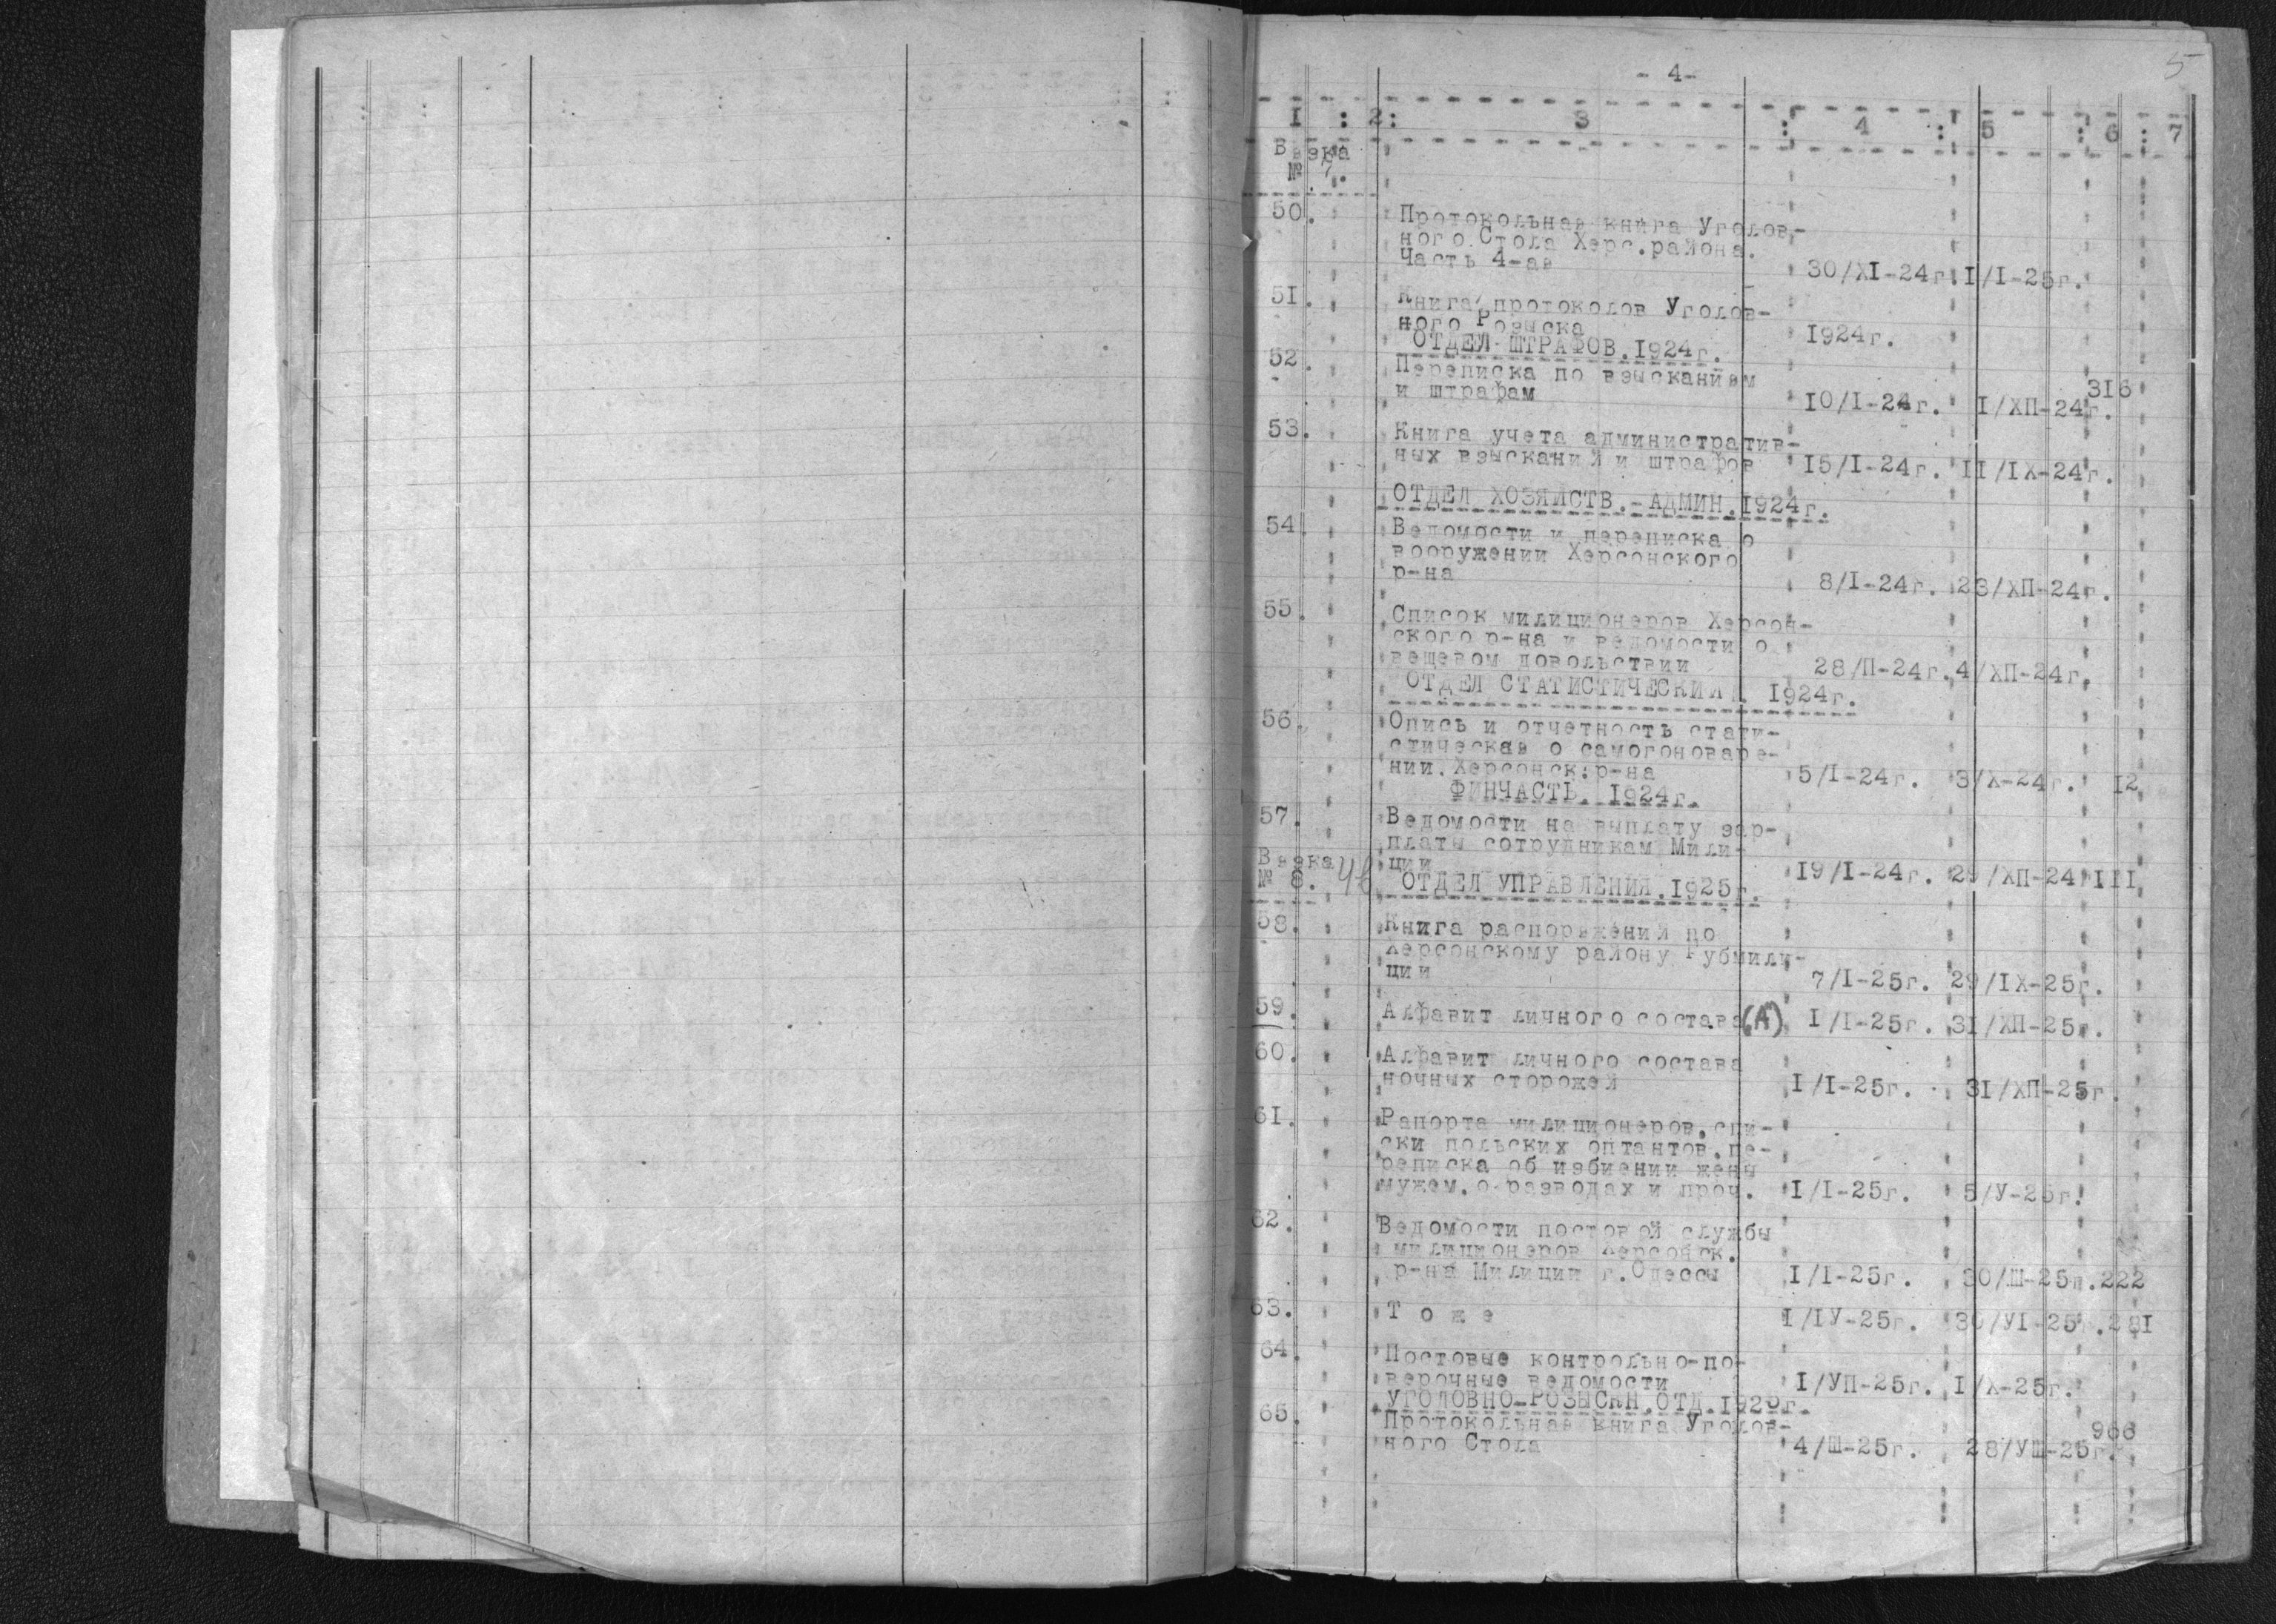 5
- 4-
I : 2: 3 : 4 : 5 : 6 : 7
Вязка
№ 7.
50. Протокольная книга Уголов-
ного Стола Херс.района.
Часть 4-ая 30/XI-24г. I/I-25г.
51. Книга протоколов Уголов-
ного Розыска 1924г.
ОТДЕЛ ШТРАФОВ.1924г.
52. Переписка по взысканиям
и штрафам 10/I-24г. I/ХП-24г. 316
53. Книга учета административ-
ных взысканий и штрафов 15/I-24г. II/IX-24г.
ОТДЕЛ ХОЗЯЙСТВ.-АДМИН.1924г.
54. Ведомости и переписка о
вооружении Херсонского
р-на 8/I-24г. 23/ХП-24г.
55. Список милиционеров Херсон-
ского р-на и ведомости о
вещевом довольствии 28/П-24г. 4/ХП-24г.
ОТДЕЛ СТАТИСТИЧЕСКИЙ. 1924г.
56. Опись и отчетность стати-
стическая о самогоноваре-
нии.Херсонск.р-на 5/I-24г. 3/X-24г. I2
ФИНЧАСТЬ. 1924г.
57. Ведомости на выплату зар-
платы сотрудникам Мили-
ции 19/I-24г. 29/ХП-24 III
Вязка
№ 8. ОТДЕЛ УПРАВЛЕНИЯ.1925г.
58. Книга распоряжений по
Херсонскому району Губмили-
ции 7/I-25г. 29/IX-25г.
59. Алфавит личного состава (А) I/I-25г. 31/ХП-25г.
60. Алфавит личного состава
ночных сторожей I/I-25г. 31/ХП-25г.
61. Рапорта милиционеров,спи-
ски польских оптантов,пе-
реписка об избиении жены
мужем,о разводах и проч. I/I-25г. 5/У-25г.
62. Ведомости постовой службы
милиционеров Херсонск.
р-на Милиции г.Одессы I/I-25г. 30/Ш-25г. 222
63. Т о ж е I/IУ-25г. 30/УI-25г. 281
64. Постовые контрольно-по-
верочные ведомости I/УП-25г. I/X-25г.
УГОЛОВНО-РОЗЫСКН.ОТД.1925г.
65. Протокольная книга Уголов-
ного Стола 4/Ш-25г. 28/УШ-25г. 966